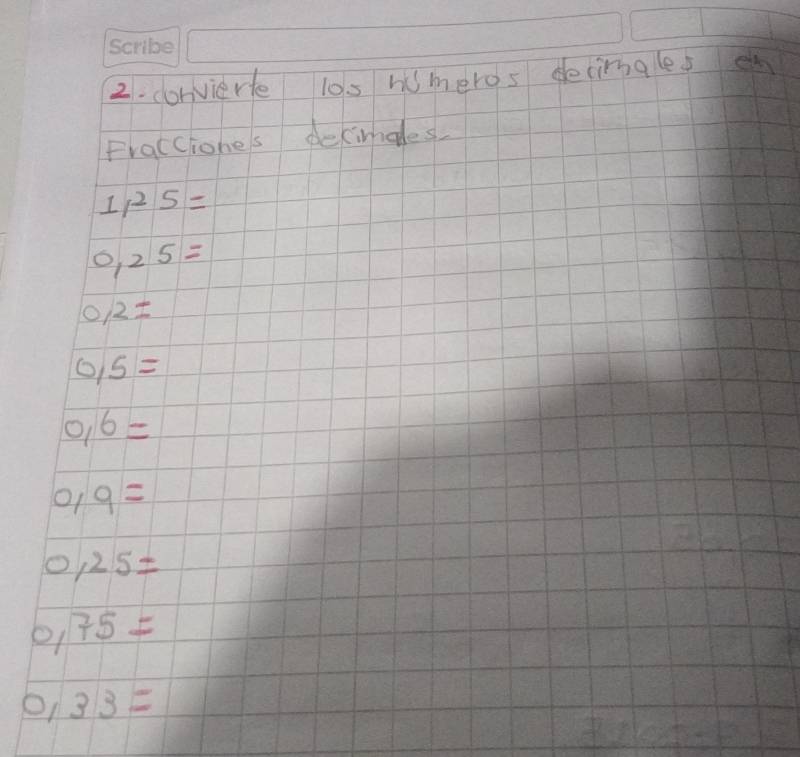 Scribe
2. convierte los números decimales en
Fracciones decimales.
1,25 =
0,25 =
0,2 =
0,5 =
0,6 =
0,9 =
0,25 =
0,75 =
0,33 =